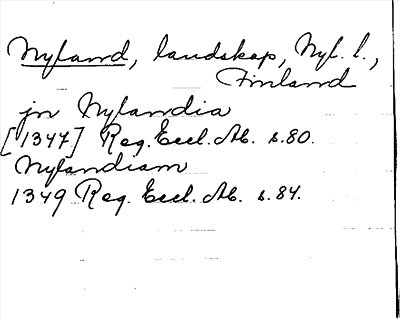 Nyland, landskap, Nyl. l.,
Finland
jn Nylandia
[1347] Reg. Eccl. Ab. s. 80.
Nylandiam
1349 Reg. Eccl. Ab. s. 84.